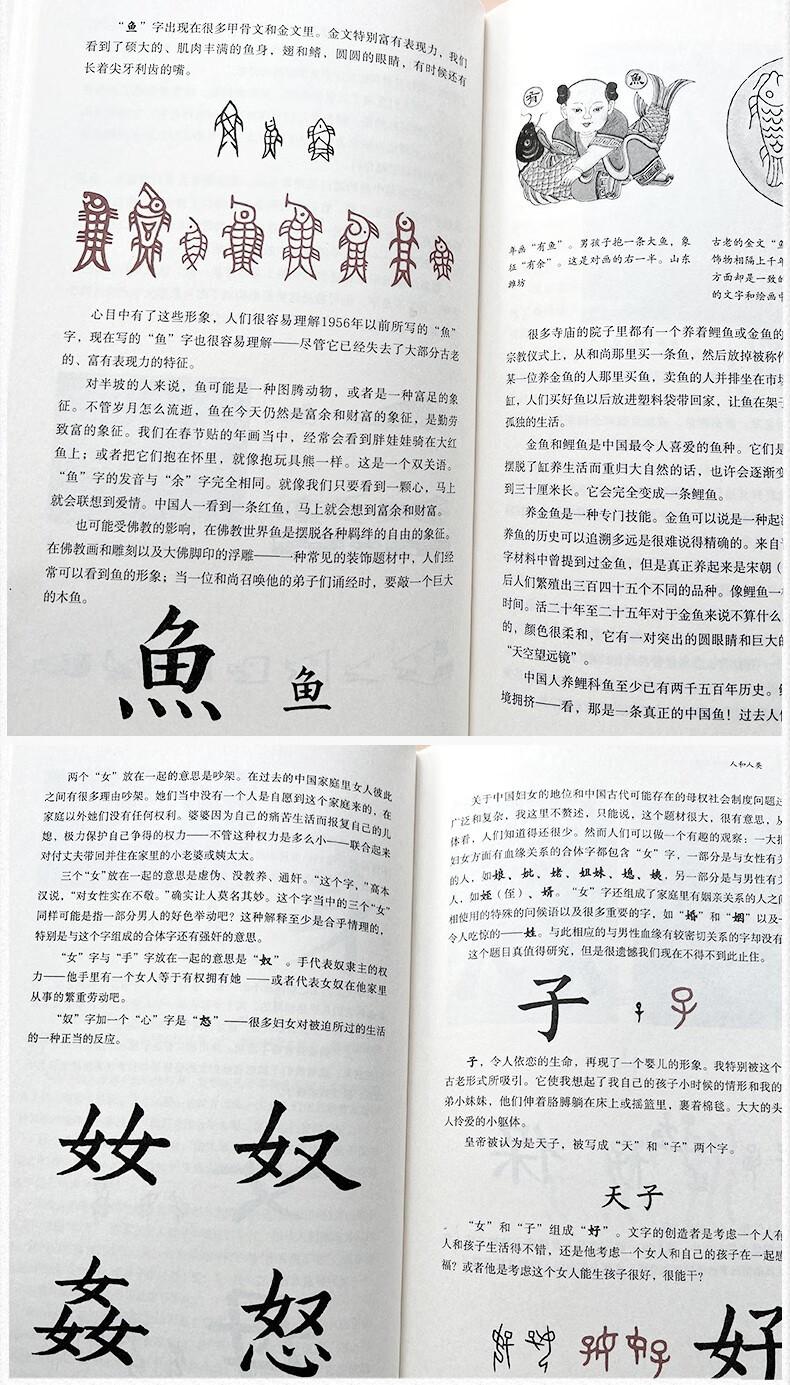 “鱼”字出现在很多甲骨文和金文里。金文特别富有表现力，我们
看到了硕大的、肌肉丰满的鱼身，翅和鳍，圆圆的眼睛，有时候还有
长着尖牙利齿的嘴。
心目中有了这些形象，人们很容易理解1956年以前所写的“魚”
字，现在写的“鱼”字也很容易理解——尽管它已经失去了大部分古老
的、富有表现力的特征。
对半坡的人来说，鱼可能是一种图腾动物，或者是一种富足的象
征。不管岁月怎么流逝，鱼在今天仍然是富余和财富的象征，是勤劳
致富的象征。我们在春节贴的年画当中，经常会看到胖娃娃骑在大红
鱼上；或者把它们抱在怀里，就像抱玩具熊一样。这是一个双关语。
“鱼”字的发音与“余”字完全相同。就像我们只要看到一颗心，马上
就会联想到爱情。中国人一看到一条红鱼，马上就会想到富余和财富。
也可能受佛教的影响，在佛教世界鱼是摆脱各种羁绊的自由的象征。
在佛教画和雕刻以及大佛脚印的浮雕——一种常见的装饰题材中，人们经
常可以看到鱼的形象；当一位和尚召唤他的弟子们诵经时，要敲一个巨大
的木鱼。
魚 鱼
有 魚
年画“有鱼”。男孩子抱一条大鱼，象
征“有余”。这是对画的右一半。山东
潍坊
古老的金文“鱼
饰物相隔上千年
方面却是一致的
的文字和绘画中
很多寺庙的院子里都有一个养着鲤鱼或金鱼的
宗教仪式上，从和尚那里买一条鱼，然后放掉被称作
某一位养金鱼的人那里买鱼，卖鱼的人并排坐在市场
缸，人们买好鱼以后放进塑料袋带回家，让鱼在架子
孤独的生活。
金鱼和鲤鱼是中国最令人喜爱的鱼种。它们是
摆脱了缸养生活而重归大自然的话，也许会逐渐变
到三十厘米长。它会完全变成一条鲤鱼。
养金鱼是一种专门技能。金鱼可以说是一种起
养鱼的历史可以追溯多远是很难说得精确的。来自
字材料中曾提到过金鱼，但是真正养起来是宋朝（
后人们繁殖出三百四十五个不同的品种。像鲤鱼一
时间。活二十年至二十五年对于金鱼来说不算什么
的，颜色很柔和，它有一对突出的圆眼睛和巨大的
“天空望远镜”。
中国人养鲤科鱼至少已有两千五百年历史。
境拥挤——看，那是一条真正的中国鱼！过去人
两个“女”放在一起的意思是吵架。在过去的中国家庭里女人彼此
之间有很多理由吵架。她们当中没有一个人是自愿到这个家庭来的，在
家庭以外她们没有任何权利。婆婆因为自己的痛苦生活而报复自己的儿
媳，极力保护自己争得的权力——不管这种权力是多么小——联合起来
对付丈夫带回并住在家里的小老婆或姨太太。
三个“女”放在一起的意思是虚伪、没教养、通奸。“这个字，”高本
汉说，“对女性实在不敬。”确实让人莫名其妙。这个字当中的三个“女”
同样可能是指一部分男人的好色举动吧？这种解释至少是合乎情理的，
特别是与这个字组成的合体字还有强奸的意思。
“女”字与“手”字放在一起的意思是“奴”。手代表奴隶主的权
力——他手里有一个女人等于有权拥有她——或者代表女奴在他家里
从事的繁重劳动吧。
“奴”字加一个“心”字是“怒”——很多妇女对被迫所过的生活
的一种正当的反应。
奻 奴
姦 怒
人和人类
关于中国妇女的地位和中国古代可能存在的母权社会制度问题
广泛和复杂，我这里不赘述，只能说，这个题材很大，很有意思，从
体看，人们知道得还很少。然而人们可以做一个有趣的观察：一大
妇女方面有血缘关系的合体字都包含“女”字，一部分是与女性有关
的人，如娘、妣、姥、姐妹、媳、姨，另一部分是与男性有关
人，如姪（侄）、婿。“女”字还组成了家庭里有姻亲关系的人之间
相使用的特殊的问候语以及很多重要的字，如“婚”和“姻”以及一
令人吃惊的——姓。与此相应的与男性血缘有较密切关系的字却没有
这个题目真值得研究，但是很遗憾我们现在不得不到此止住。
子
子，令人依恋的生命，再现了一个婴儿的形象。我特别被这个
古老形式所吸引。它使我想起了我自己的孩子小时候的情形和我的
弟小妹妹，他们伸着胳膊躺在床上或摇篮里，裹着棉毯。大大的头
人怜爱的小躯体。
皇帝被认为是天子，被写成“天”和“子”两个字。
天子
“女”和“子”组成“好”。文字的创造者是考虑一个人有
人和孩子生活得不错，还是他考虑一个女人和自己的孩子在一起感
福？或者他是考虑这个女人能生孩子很好，很能干？
好